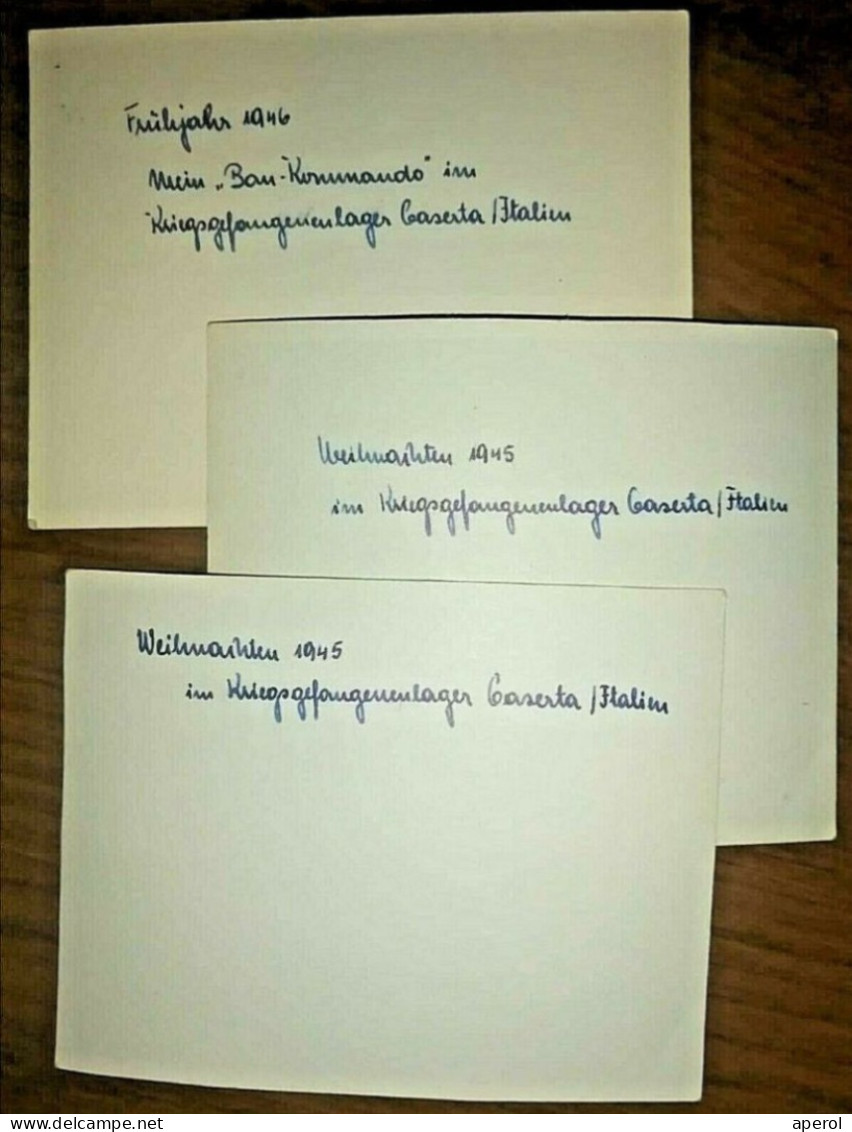 Frühjahr 1946
Mein „Bau-Kommando" im
Kriegsgefangenenlager Caserta/Italien
Weihnachten 1945
im Kriegsgefangenenlager Caserta/Italien
Weihnachten 1945
im Kriegsgefangenenlager Caserta/Italien
delcampe.net
aperol